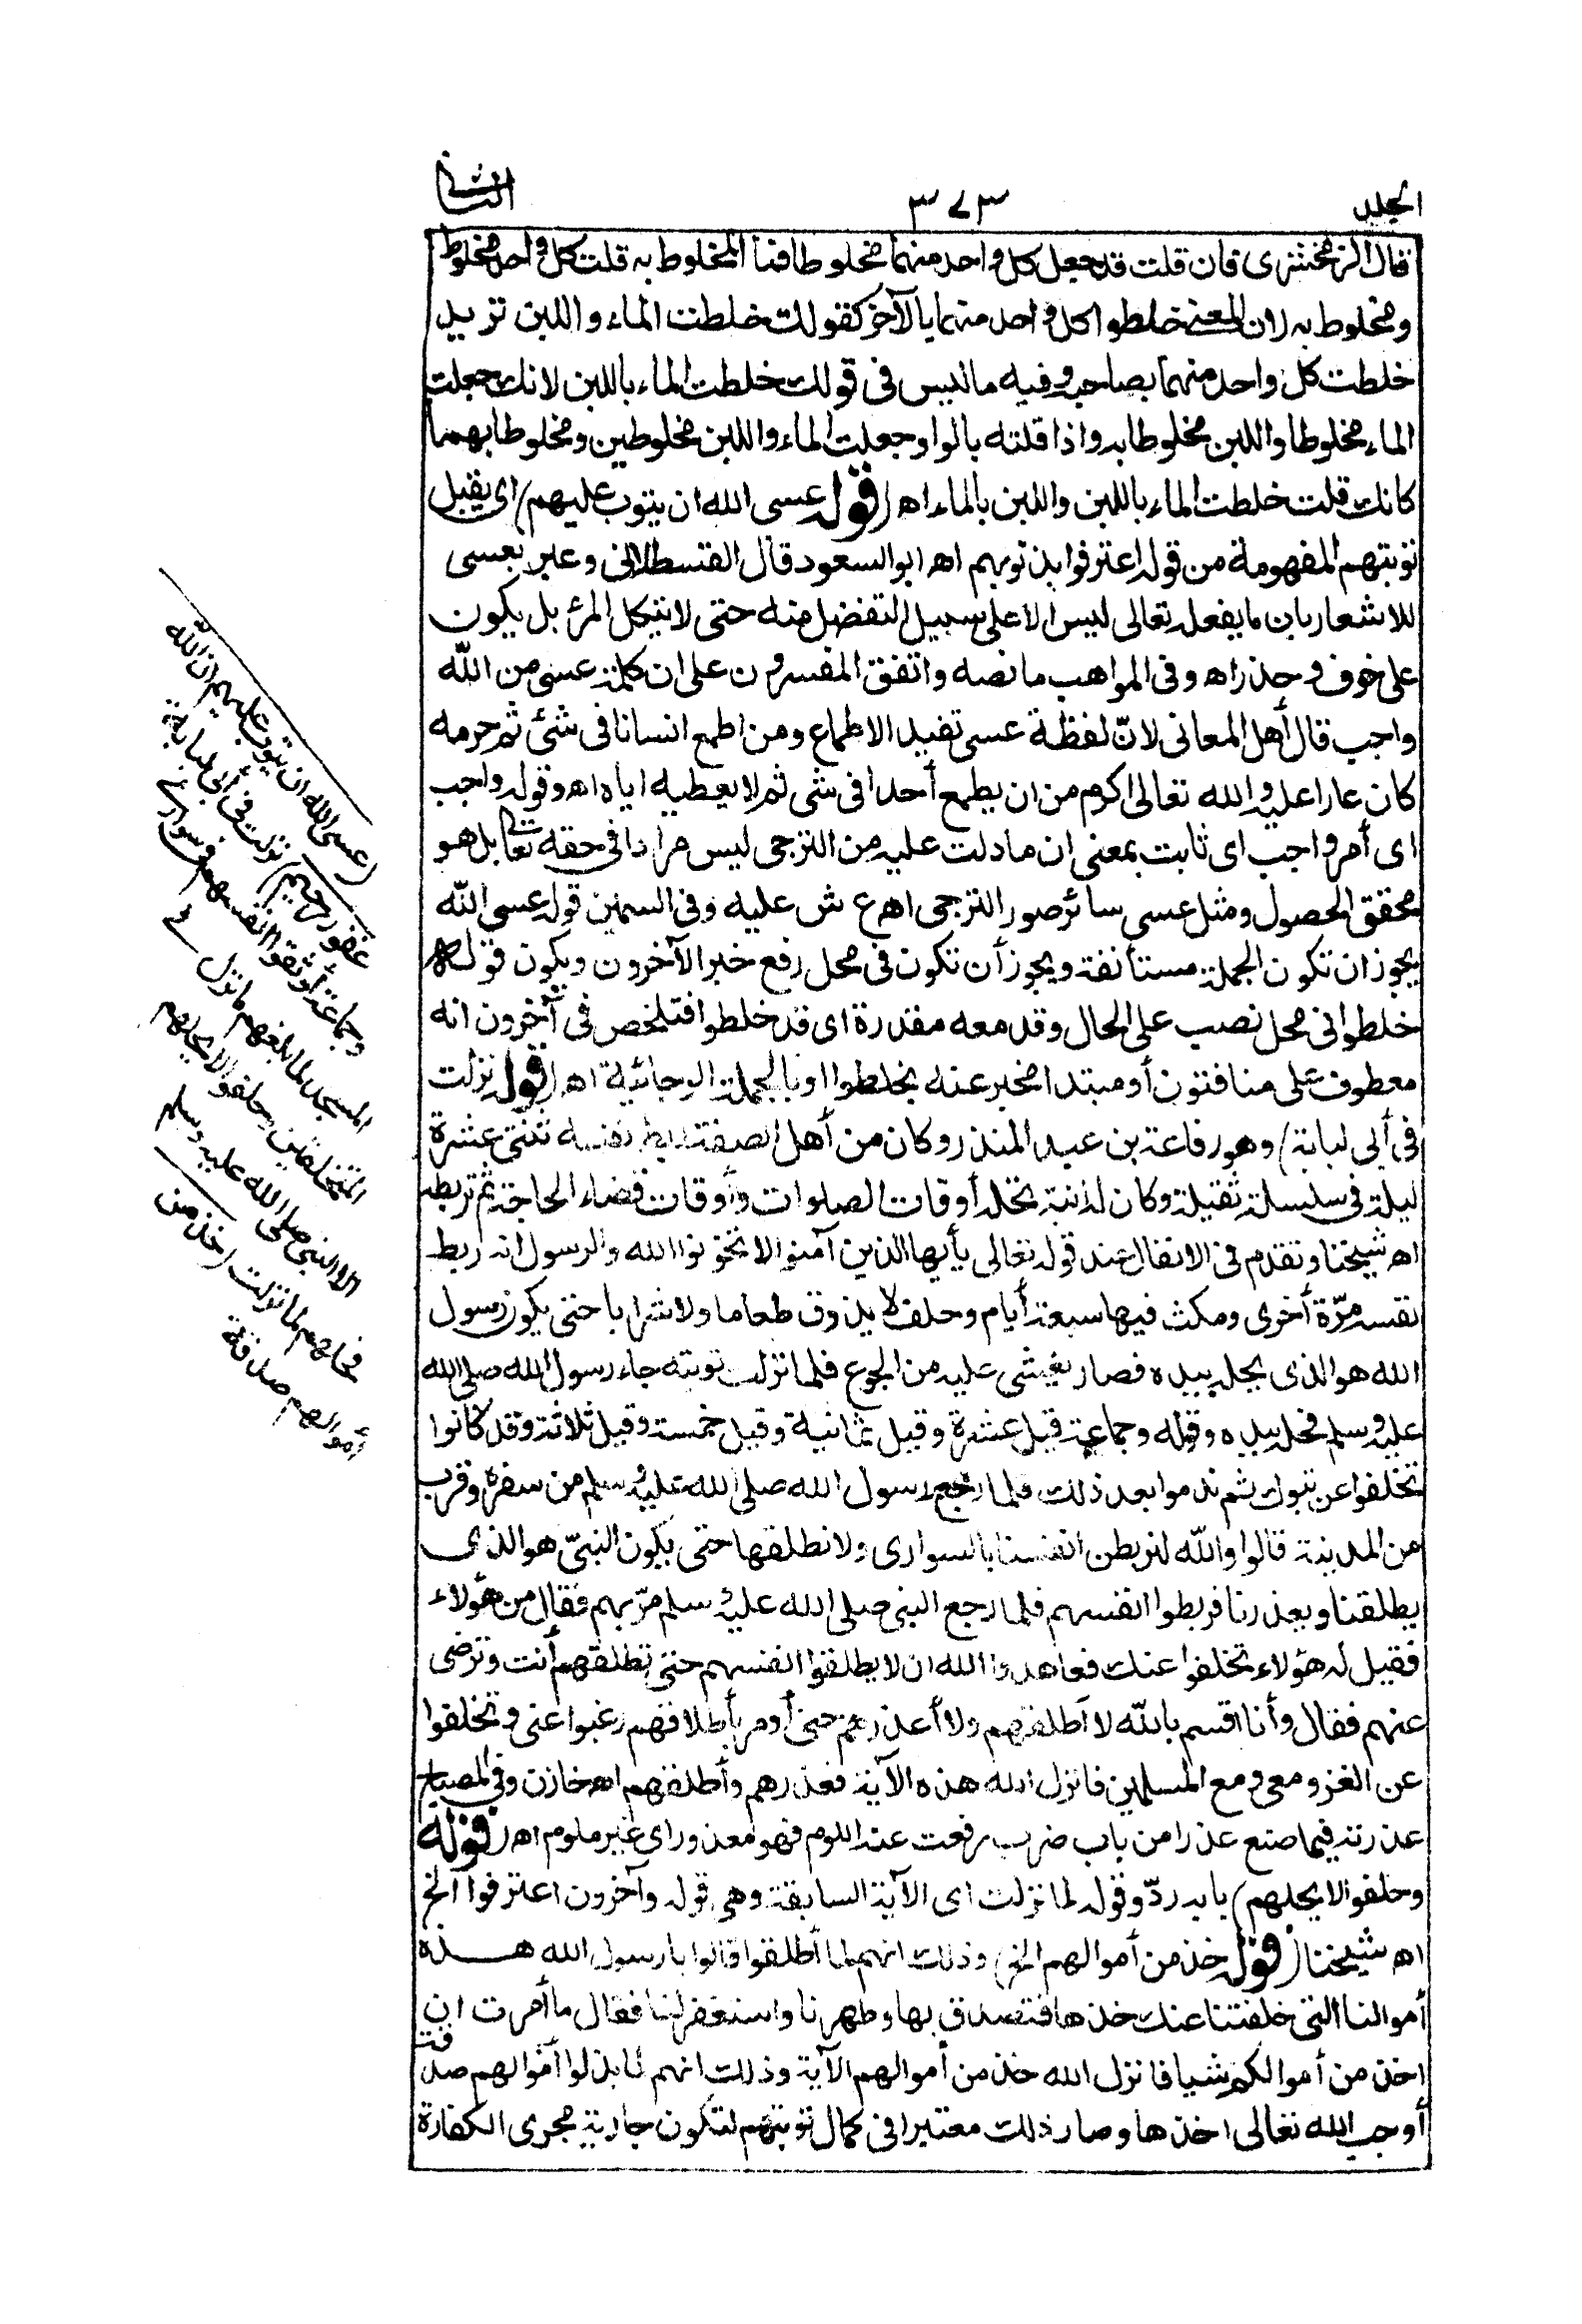 الجلد
٣٧٣
الثاني
قال الزمخشرى فان قلت قد جعل كل واحد منهما مخلوطا فما المخلوط به قلت كل واحد مخلوط
ومخلوط به لان المعنى خلطوا كل واحد منهما بالآخر كقولك خلطت الماء واللبن تريد
خلطت كل واحد منهما بصاحبه وفيه ما ليس فى قولك خلطت الماء باللبن لانك جعلت
الماء مخلوطا واللبن مخلوطا به واذا قلته بالواو جعلت الماء واللبن مخلوطين ومخلوطا بهما
كانك قلت خلطت الماء باللبن واللبن بالماء اه (قوله عسى الله ان يتوب عليهم) اى يقبل
توبتهم المفهومة من قوله اعترفوا بذنوبهم اه ابو السعود قال القسطلانى وعبر بعسى
للاشعار بان ما يفعله تعالى ليس الا على سبيل التفضل منه حتى لا يتكل المرئ بل يكون
على خوف وحذر اه وفى المواهب ما نصه واتفق المفسرون على ان كلمة عسى من الله
واجب قال أهل المعانى لانّ لفظة عسى تفيد الاطماع ومن اطمع انسانا فى شئ ثم حرمه
كان عارا عليه والله تعالى اكرم من ان يطمع أحدا فى شى ثم لا يعطيه اياه اه وقوله واجب
اى أمر واجب اى ثابت بمعنى ان ما دلت عليه من الترجى ليس مرادا فى حقه تعالى بل هو
محقق الحصول ومثل عسى سائر صور الترجى اه ع ش عليه وفى السمين قوله عسى الله
يجوز ان تكون الجملة مستأنفة ويجوز أن تكون فى محل رفع خبر الآخرون ويكون قوله
خلطوا فى محل نصب على الحال وقد معه مقدرة اى قد خلطوا فتلخص فى آخرون انه
معطوف على منافقون أو مبتدا مخبر عنه بخلطوا او بالجملة الرجائية اه (قوله نزلت
فى أبى لبابة) وهو رفاعة بن عبد المنذر وكان من أهل الصفة ربط نفسه ثنتى عشرة
ليلة فى سلسلة ثقيلة وكان له ابنة تحله أوقات الصلوات وأوقات قضاء الحاجة ثم تربطه
اه شيخنا وتقدم فى الانفال عند قوله تعالى يأيها الذين آمنوا لا تخونوا الله والرسول انه ربط
نفسه مرّة أخرى ومكث فيها سبعة أيام وحلف لا يذوق طعاما ولا شرابا حتى يكون رسول
الله هو الذى يحله بيده فصار يغشى عليه من الجوع فلما نزلت توبته جاء رسول الله صلى الله
عليه وسلم فحله بيده وقوله وجماعة قيل عشرة وقيل ثمانية وقيل خمسة وقيل ثلاثة وقد كانوا
تخلفوا عن تبوك ثم ندموا بعد ذلك فلما رجع رسول الله صلى الله عليه وسلم من سفره وقرب
من المدينة قالوا والله لنربطن انفسنا بالسوارى ولا نطلقها حتى يكون النبىّ هو الذى
يطلقنا ويعذرنا فربطوا انفسهم فلما رجع النبى صلى الله عليه وسلم مرّ بهم فقال من هؤلاء
فقيل له هؤلاء تخلفوا عنك فعاهدوا الله ان لا يطلقوا انفسهم حتى تطلقهم أنت وترضى
عنهم فقال وأنا اقسم بالله لا أطلقهم ولا أعذرهم حتى أومر بأطلاقهم رغبوا عنى وتخلفوا
عن الغزو معى ومع المسلمين فانزل الله هذه الآية فعذرهم وأطلقهم اه خازن وفى المصباح
عذرته فيما صنع عذرا من باب ضرب رفعت عنه اللوم فهو معذور اى غير ملوم اه (قوله
وحلفوا لا يحلهم) بابه ردّ وقوله لما نزلت اى الآية السابقة وهى قوله وآخرون اعترفوا الخ
اه شيخنا (قوله خذ من أموالهم الخ) وذلك انهم لما أطلقوا قالوا يا رسول الله هذه
أموالنا التى خلفتنا عنك خذها فتصدق بها وطهرنا واستغفر لنا فقال ما أمرت ان
اخذ من أموالكم شيا فانزل الله خذ من أموالهم الآية وذلك انهم لما بذلوا أموالهم صدقة
أوجب الله تعالى اخذها وصار ذلك معتبرا فى كمال توبتهم لتكون جارية مجرى الكفارة
(عسى الله ان يتوب عليهم ان الله
غفور رحيم) نزلت فى أبى لبابة
وجماعة أوثقوا انفسهم فى سوارى
المسجد لما بلغهم ما نزل فى
المتخلفين وحلفوا لا يحلهم
الا النبى صلى الله عليه وسلم
فحلهم لما نزلت (خذ من
أموالهم صدقة